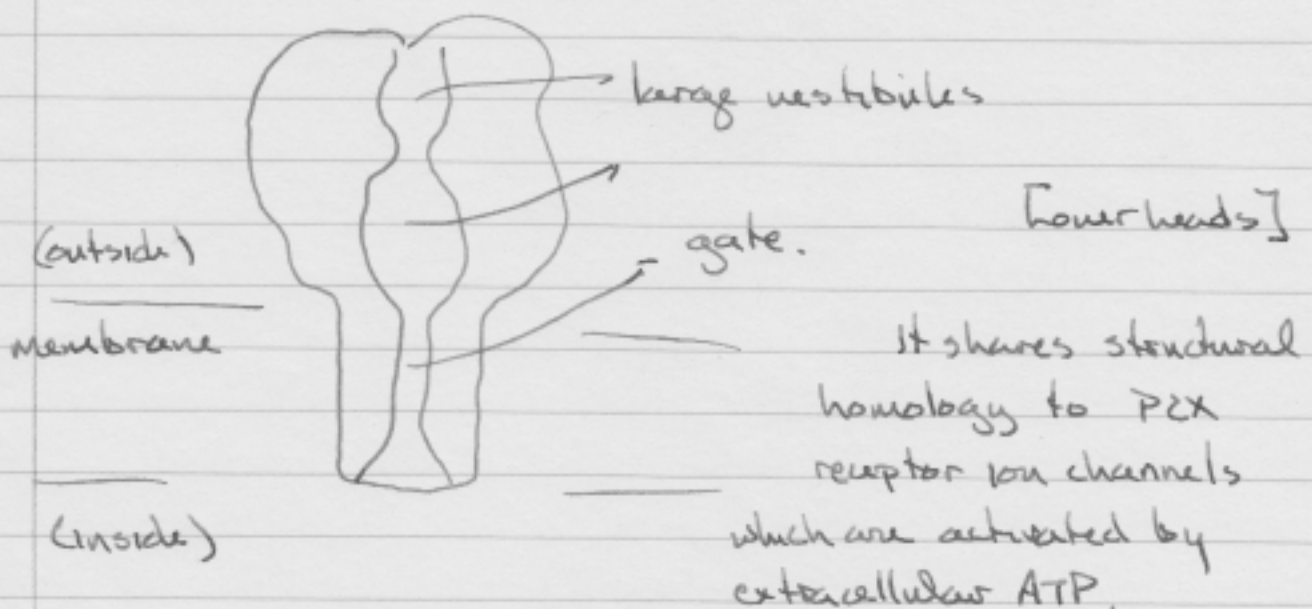 large vestibules
[overheads]
(outside)
gate.
membrane
It shares structural
homology to P2X
receptor ion channels
(inside)
which are activated by
extracellular ATP.